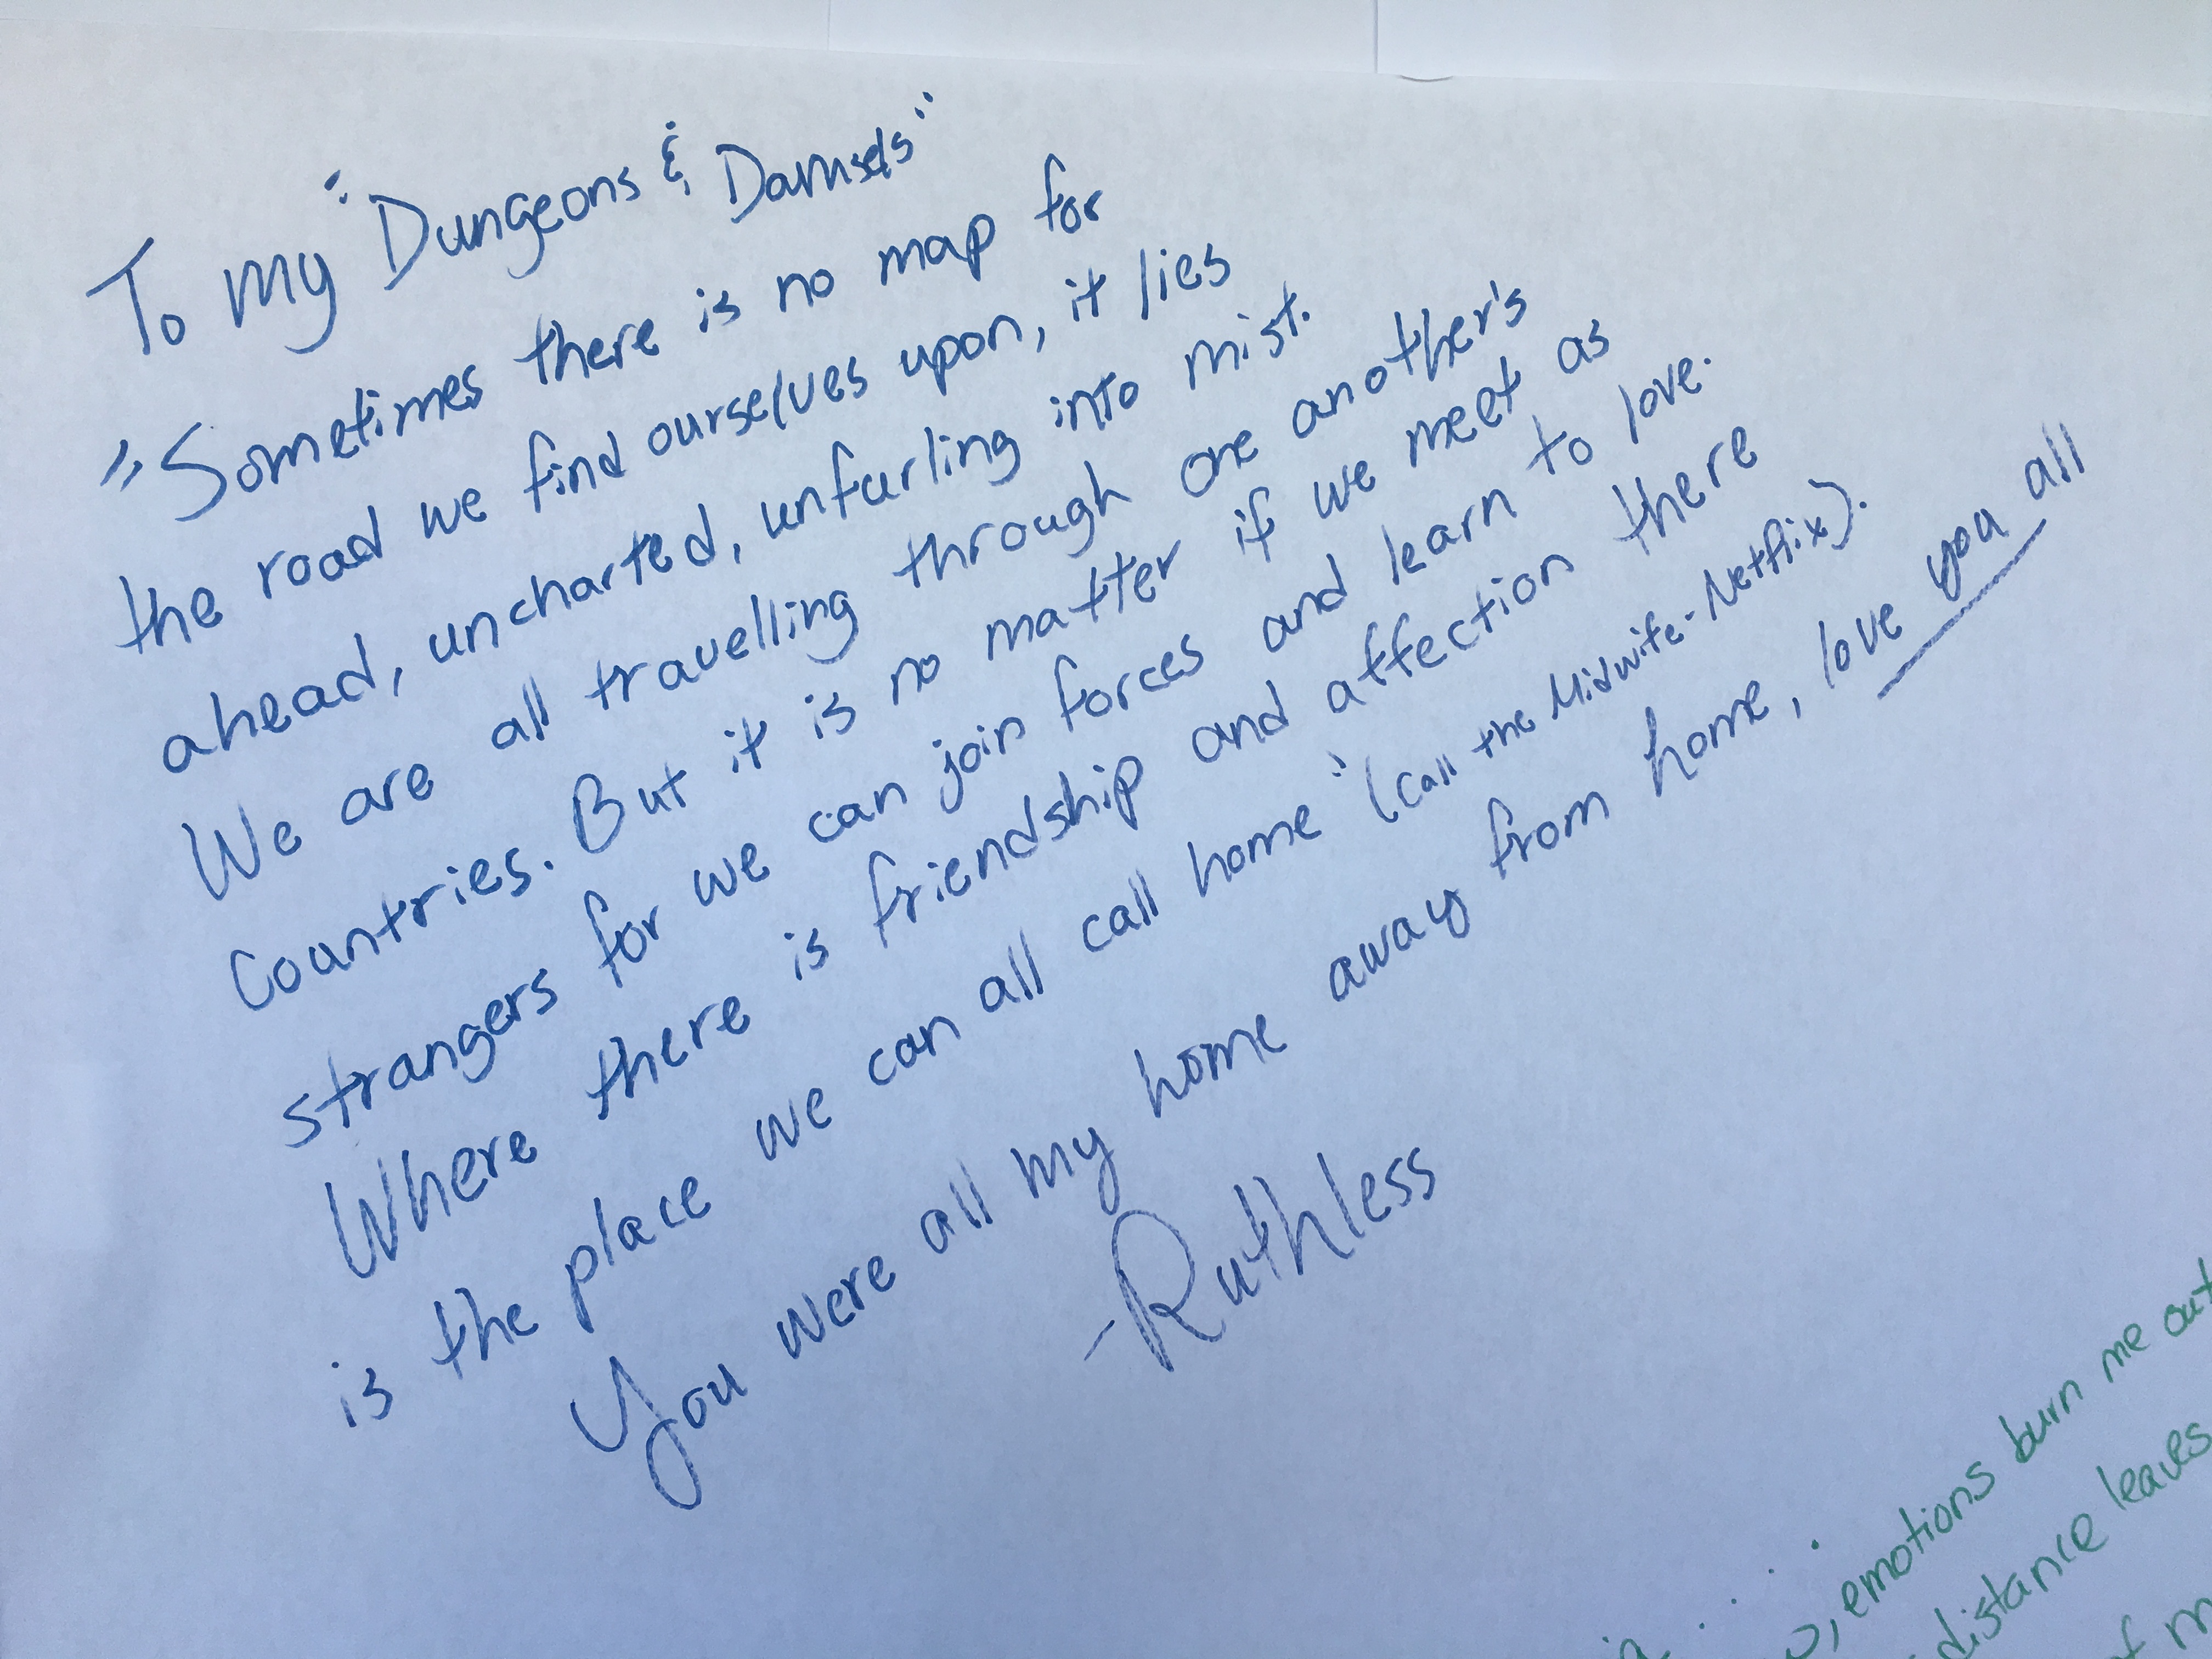 To my "Dungeons & Damsels"
"Sometimes there is no map for
the road we find ourselves upon, it lies
ahead, uncharted, unfurling into mist.
We are all travelling through one another's
Countries. But it is no matter if we meet as
strangers for we can join forces and learn to love.
Where there is friendship and affection there
is the place we can all call home" (Call the Midwife-Netflix).
You were all my home away from home, love you all
-Ruthless
, emotions burn me out
distance leaves